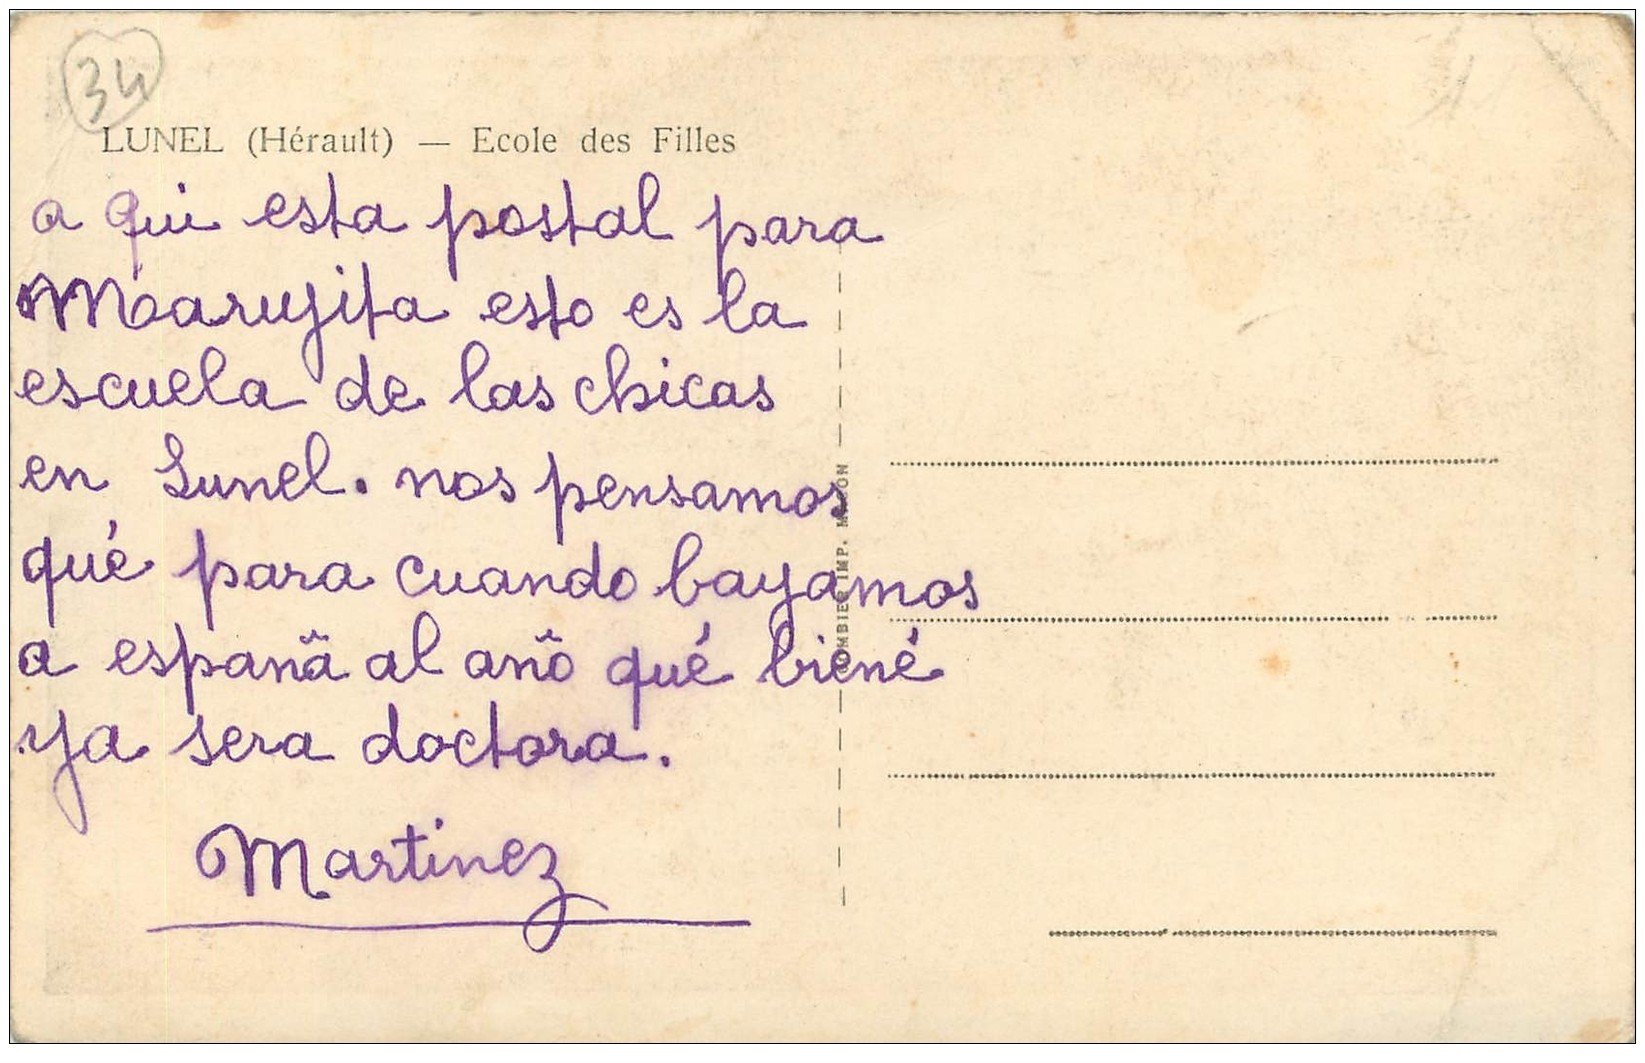 34
LUNEL (Hérault) — Ecole des Filles
a qui esta postal para
Marujita esto es la
escuela de las chicas
en Lunel. nos pensamos
qué para cuando bayamos
a espanã al anõ qué biené
ya sera doctora.
Martinez
IMP.